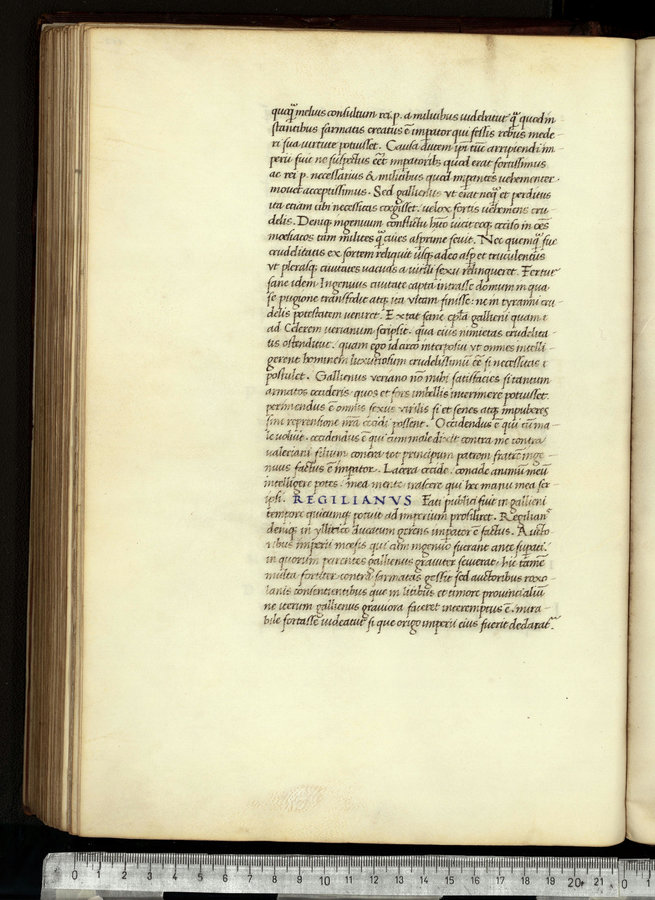 quāq̄ melius consultum rei.p. a militibus uidebatur q̄ quod in
stantibus sarmatis creatus ē impator qui fessis rebus mede-
ri sua uirtute potuisset. Causa autem ipi tūc arripiendi im-
perii fuit ne suspectus eēt impatorib; quod erat fortissimus
ac rei p. necessarius & militibus quod impantes uehementer
mouet acceptissimus. Sed gallienus ut erat neq̄ et perditus
ita etiam ubi necessitas coegisset. uelox fortis uehemens cru-
delis. Deniq; ingenuum conflictu habito uicit eoq; occiso in oēs
moesiacos tam milites q̄ ciues asprime seuit. Nec quemq̄ sue
crudelitatis exsortem reliquit usq; adeo asp et truculentus
ut plerasq; ciuitates uacuas a uirili sexu relinqueret. Fertur
sane idem Ingenuus ciuitate capta intrasse domum in qua
se pugione transfodit atq; ita uitam finisse: ne in tyranni cru-
delis potestatem ueniret. Extat sane epl̄a gallieni quam
ad Celerem uerianum scripsit. qua eius nimietas crudelita-
tis ostenditur. quam ego idcirco interposui ut omnes intelli-
gerent hominem luxuriosum crudelissimū eē si necessitas
postulet. Gallienus ueriano nō mihi satisfacies si tantum
armatos occideris quos et fors imbellis interimere potuisset.
perimendus ē omnis sexus uirilis si et senes atq; impuberes
sine reprensione nrā occidi possent. Occidendus ē qui cūma-
le uoluit. occidendus ē qui cum male dixit contra me contra
ualeriani filium contra tot principum patrem fratrē inge-
nuus factus ē impator. Lacera occide. concide animū meū
intelligere potes. mea mente irascere qui hec manu mea scr
ipsi. REGILIANVS Fati publici fuit in gallieni
tempore quicumq; potuit ad imperium prosiliret. Regilian9
deniq; in yllirico ducatum gerens impator ē factus. Aucto-
ribus imperii mœsis qui cum ingenuo fuerant ante supati.
in quorum parentes gallienus grauiter seuierat. hic tamē
multa fortiter contra sarmatas gessit sed auctoribus roxo-
lanis consentientibus que militibus et timore prouincialiū
ne iterum gallienus grauiora faceret interemptus ē. mira-
bile fortasse uideatur si que origo imperii eius fuerit declarat̄